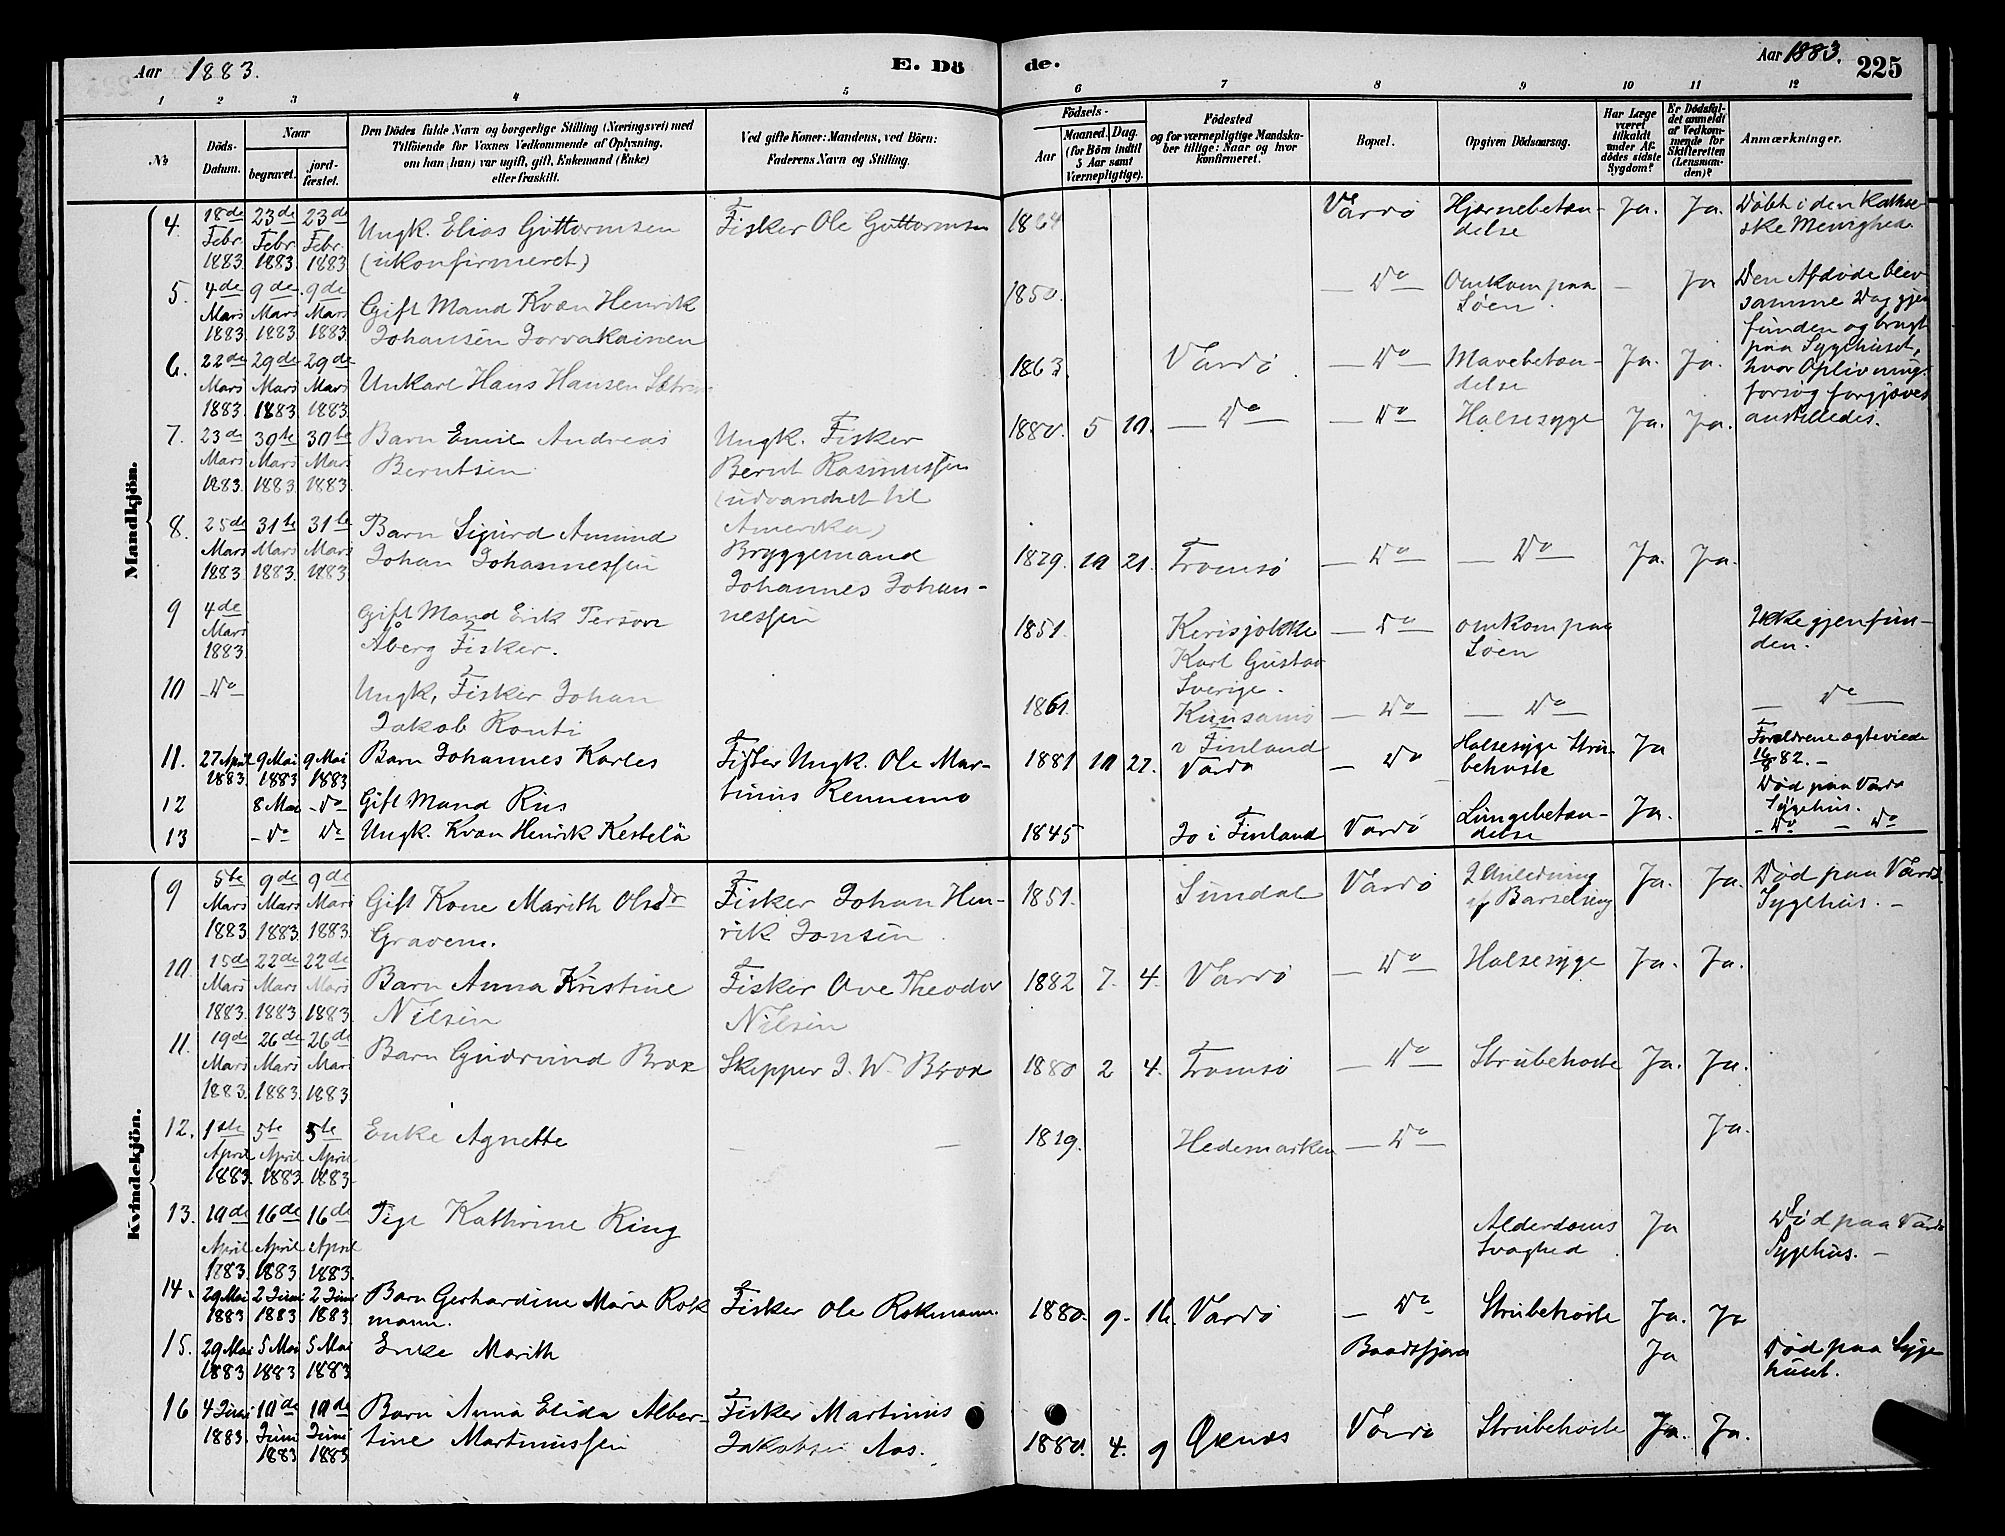 Aar 1883. E. Dö
de. Aar 1883. 225
1 2 3 4 5 6 7 8 9 10 11 12
No
Döds-
Datum.
Naar
begravet.
jord-
fæstet.
Den Dödes fulde Navn og borgerlige Stilling (Næringsvei) med
Tilföiende for Voxnes Vedkommende af Oplysning,
om han (hun) var ugift, gift, Enkemand (Enke)
eller fraskilt.
Ved gifte Koner: Mandens, ved Börn:
Faderens Navn og Stilling.
Födsels-
Aar
Maaned. Dag.
(for Börn indtil
5 Aar samt
Værnepligtige).
Födested
og for værnepligtige Mandska-
ber tillige: Naar og hvor
konfirmeret.
Bopæl.
Opgiven Dödsaarsag.
Har Læge
været
tilkaldt
under Af-
dödes sidste
Sygdom?
Er Dödsfal-
det anmeldt
af Vedkom-
mende for
Skifteretten
(Lensman-
den)?
Anmærkninger.
Mandkjön.
4. 18de 23de 23de
Febr Febr Febr.
1883. 1883. 1883
Ungk. Elias Guttormsen
(ukonfirmeret)
Fisker Ole Guttormsen
1864 Vardö Hjernebetæn-
delse Ja. Ja.
Döbt i den Katho-
ske Menighed
5. 4de 9de 9de
Mars Mars Mars
1883. 1883. 1883.
Gift Mand Kvæn Henrik
Johansen
1850. Do Omkom paa
Söen. - Ja
Den Afdöde blev
samme Dag gjen
funden og bragt
paa Sygehuset,
hvor Oplivnings
forsög forgjæves
anstilledes.
6. 22de 29de 29de
Mars Mars Mars
1883. 1883 1883.
Unkarl Hans Hansen
1863. Vardö Do Mavebetæn-
delse Ja. Ja.
7. 23de 30te 30te
Mars Mars Mars
1883. 1883. 1883
Barn Emil Andreas
Berntsen
Ungk. Fisker
Bernt Rasmussen
(udvandret til
Amerika)
1880. 5 10. Do Do Halsesyge Ja. Ja.
8. 25de 31te 31te
Mars Mars Mars
1883 1883. 1883.
Barn Sigurd Amund
Johan Johannessen
Bryggemand
Johannes Johan-
nessen
1879. 10 21. Tromsö Do Do Ja. Ja.
9 4de
Mars
1883.
Gift Mand Erik Persson
Åberg Fisker.
1851. Kerisjokke
Karl Gustav
Sverige.
Do omkom paa
Söen
Ikke gjenfun-
den.
10 Do
Ungk, Fisker Johan
Jakob Ronti
1861. Kuusamo
i Finland
Do Do Do
11. 27 April 9 Mai 9 Mai
1883. 1883 1883
Barn Johannes Karles
Fisker Ungk. Ole Mar-
tinus
1881 10 27. Vardö Do Halsesyge Stru-
behoste Ja
Forældrene ægteviede
82. -
12 8 Mai Do Gift Mand Rus
Död paa Vardö
Sygehus.
13 Do Do Ungk. Kvæn Henrik Kestelä
1845 Io i Finland Vardö Lungebetæn-
delse Ja.
Do - Do
Kvindekjön.
9 5te 9de 9de
Mars Mars Mars
1883. 1883. 1883.
Gift Kone Marith Olsdr
Gravem.
Fisker Johan Hen-
rik Jonsen
1851. Sundal Vardö I Anledning
af Barselseng Ja. Ja.
Död paa Vardö
Sygehus. -
10. 15de 22de 22de
Mars Mars Mars
1883. 1883 1883
Barn Anna Kristine
Nilsen
Fisker Ove Theodor
Nilsen
1882 7. 4. Vardö Do Halsesyge Ja. Ja.
11. 19de 26de 26de
Mars Mars Mars
1883. 1883. 1883
Barn Gudrund Brox
Skipper J. W. Brox
1880 2 4. Tromsö Do Strubehoste Ja. Ja.
12. 1ste 5te 5te
April April April
1883. 1883. 1883.
Enke Agnette - -
1819. Hedemarken Do Ja.
13. 10de 16de 16de
April April April
1883. 1883 1883.
Pige Kathrine Ring
Alderdoms
Svaghed Ja
Död paa Vardö
Sygehus. -
14. 29 Mai 2 Juni 2 Juni
1883 1883 1883
Barn Gerhardine Maria Rok
mann.
Fisker Ole Rokmann.
1880. 9. 16. Vardö Do Strubehoste Ja. Ja
15. 29 Mai 5 Mai 5 Mai
1883 1883 1883
Enke Marith
Baadsfjord Ja
Död paa Syge
huset.
16 4 Juni 10de 10de
1883. Juni Juni
1883 1883
Barn Anna Elida Alber-
tine Martinussen
Fisker Martinus
Jakobsen Aas.
1880. 4. 9 Vardö Strubehoste Ja. Ja.